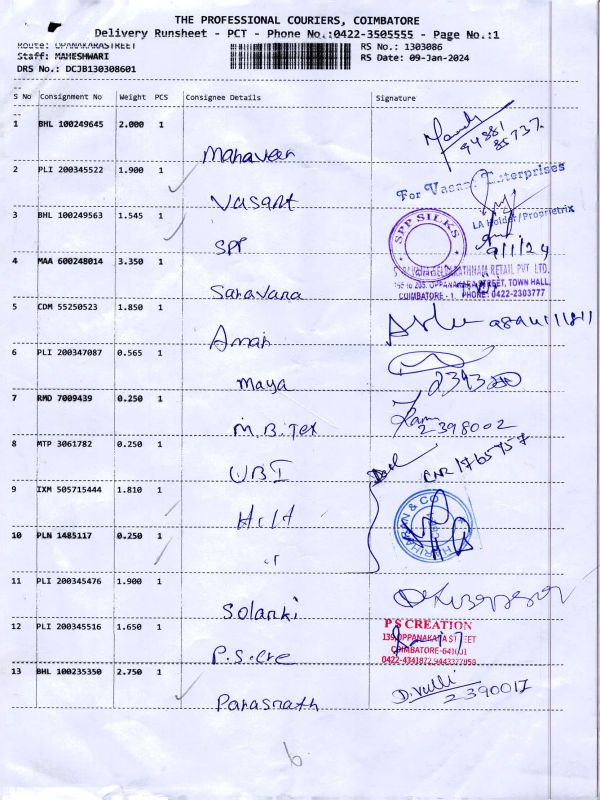 THE PROFESSIONAL COURIERS, COIMBATORE
Delivery Runsheet - PCT - Phone No.:0422-3505555 - Page No.:1
Route: OPANAKARASTREET RS No.: 1303086
Staff: MAHESHWARI RS Date: 09-Jan-2024
DRS No.: DCJB130308601
S No Consignment No Weight PCS Consignee Details Signature
1 BHL 100249645 2.000 1
Mahaveer
94881
85737
2 PLI 200345522 1.900 1
Vasant
For Vasant Enterprises
LA Holder/Proprietrix
3 BHL 100249563 1.545 1
SPP
SPP SILKS
9/1/24
4 MAA 600248014 3.350 1
Saravana
RETAIL PVT. LTD.
OPPANAKARA STREET, TOWN HALL,
COIMBATORE - 1. PHONE: 0422-2303777
5 CDM 55250523 1.850 1
Aman
6 PLI 200347087 0.565 1
Maya
7 RMD 7009439 0.250 1
M.B.Tex
2398002
8 MTP 3061782 0.250 1
UBI
9 IXM 505715444 1.810 1
HARIHARAN & CO
10 PLN 1485117 0.250 1
11 PLI 200345476 1.900 1
Solanki
12 PLI 200345516 1.650 1
P.S.cre
P S CREATION
139, OPPANAKARA STREET
COIMBATORE-641001
0422-4341872
13 BHL 100235350 2.750 1
Parasnath
D. Valli
2390017
6